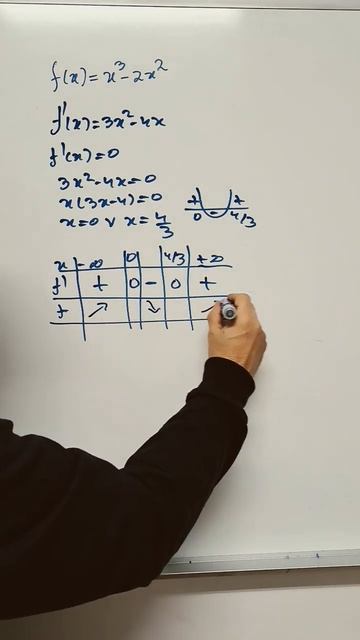 f(x)=x³-2x²
f'(x)=3x²-4x
f'(x)=0
3x²-4x=0
x(3x-4)=0
x=0 ∨ x=4/3
+ - +
0 4/3
x -∞ 0 4/3 +∞
f' + 0 - 0 +
f ↗ ↘